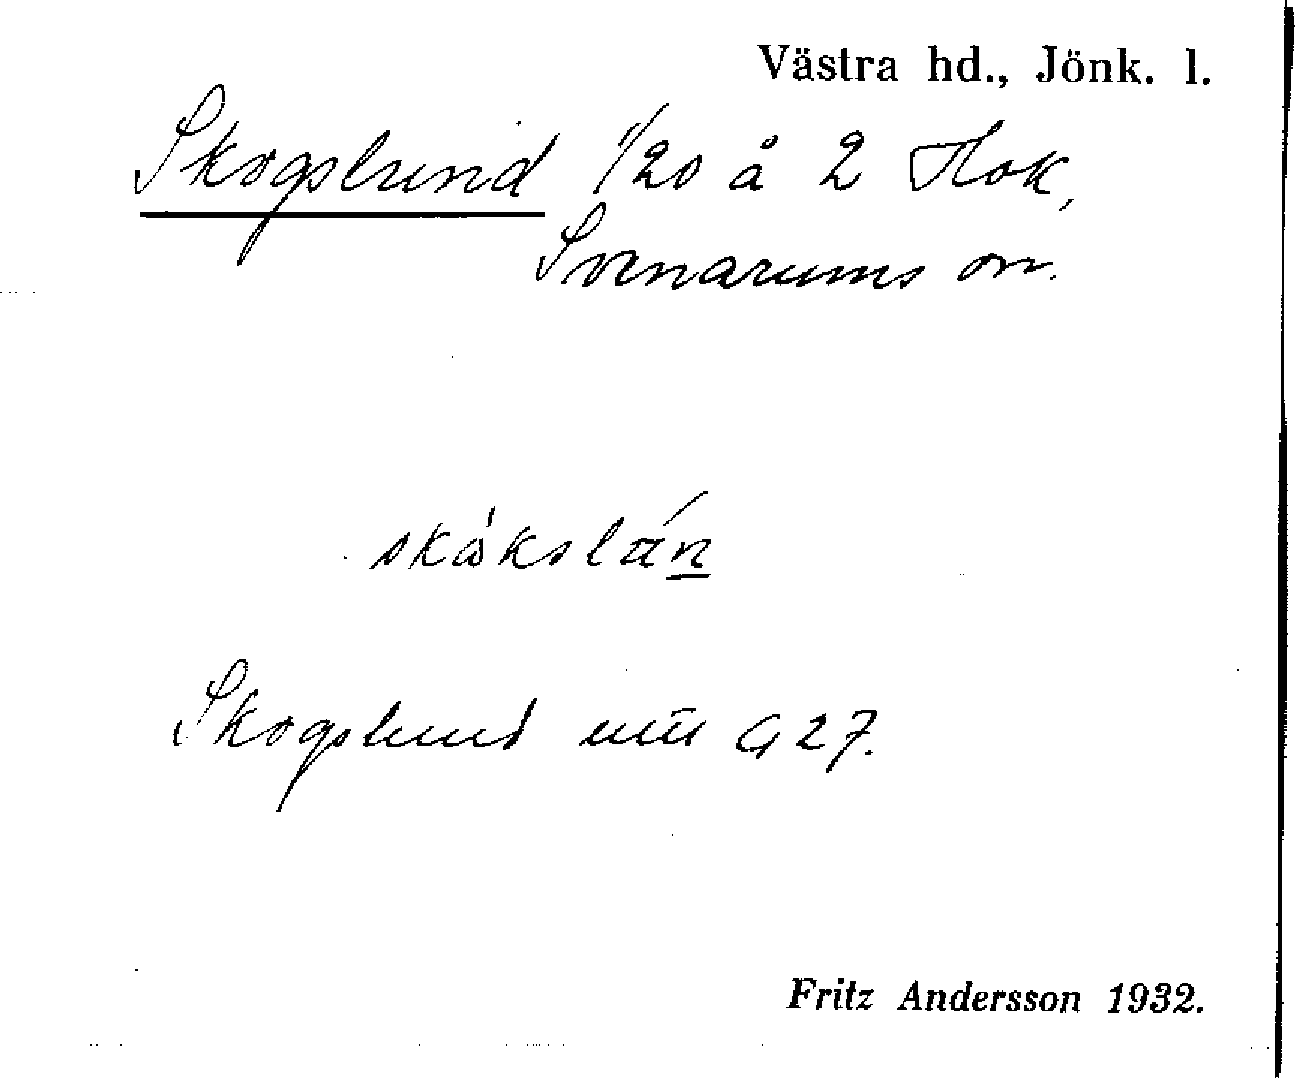 Västra hd., Jönk. l.
Skogslund 1/20 å 2 Hok,
Svenarums sn.
skåkslán
Skogslund G 27.
Fritz Andersson 1932.